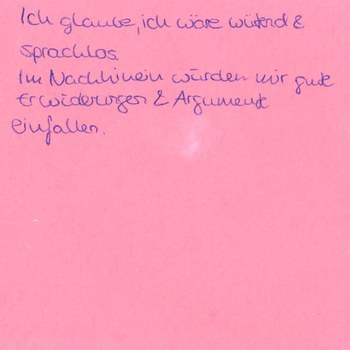 Ich glaube, ich wäre wütend &
sprachlos.
Im Nachhinein würden mir gute
Erwiderungen & Argumente
einfallen.